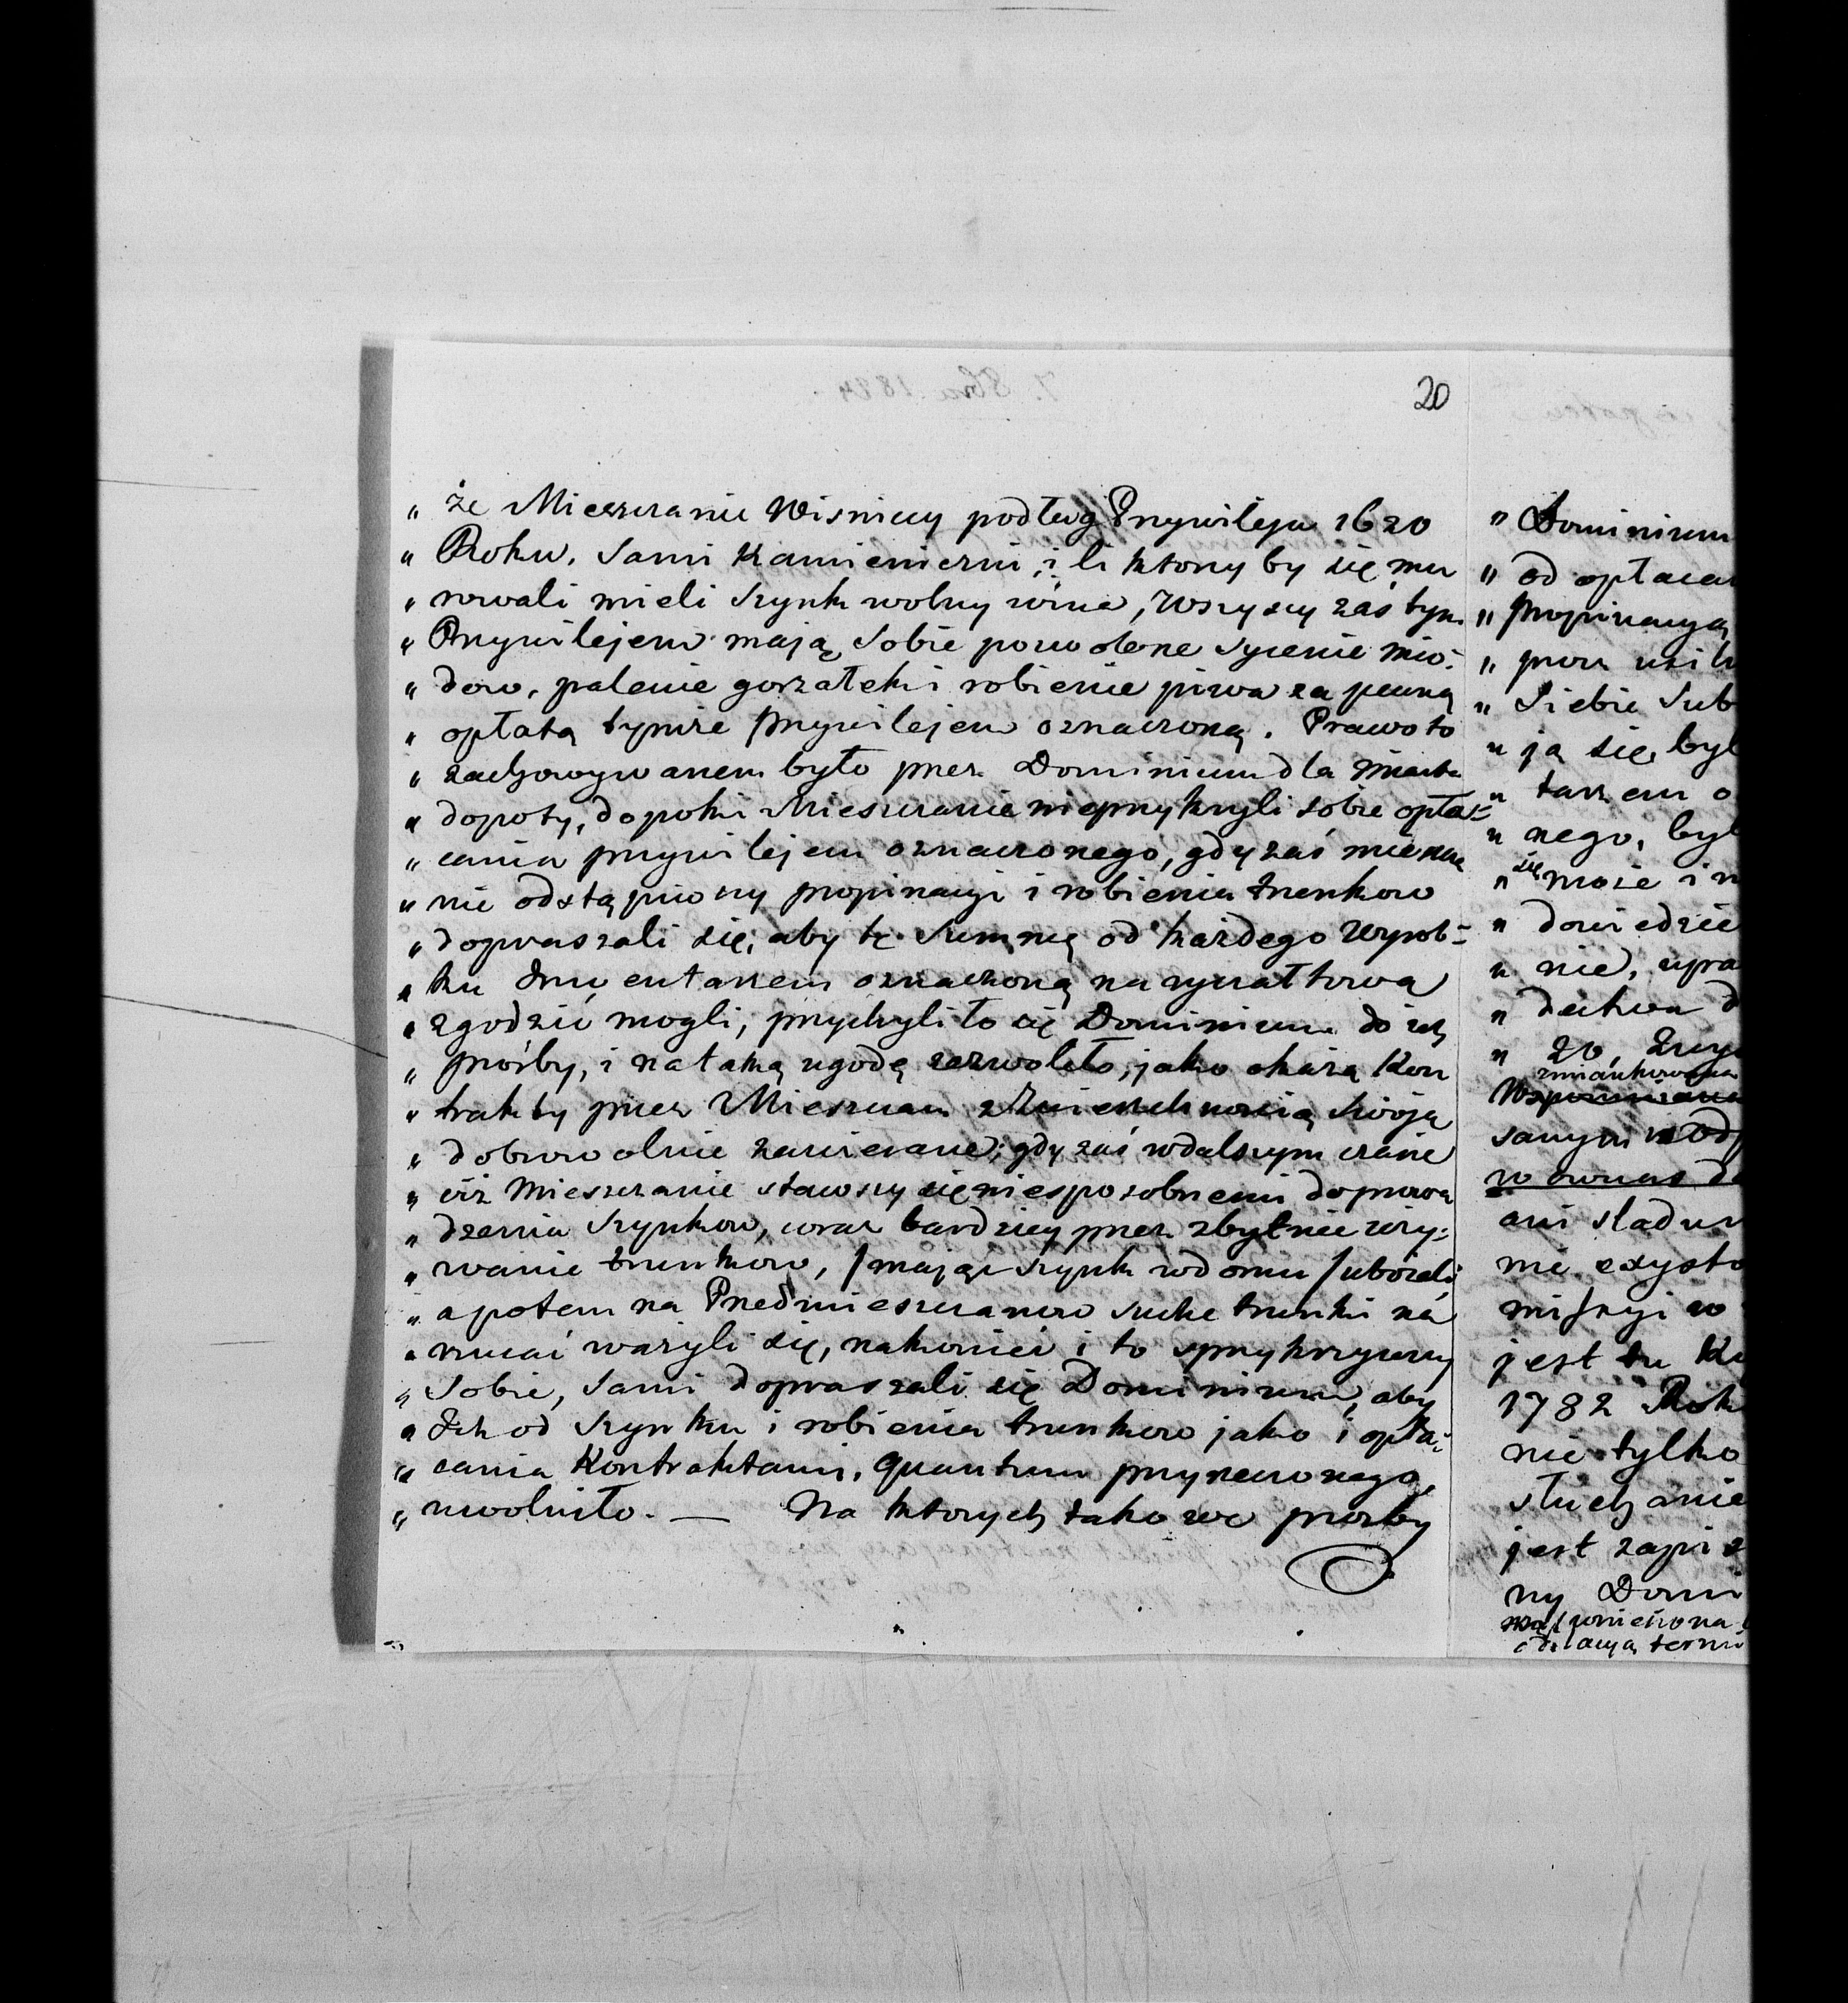 20
„ że Mieszczanie Wisniccy podług Przywileju 1620
„ Roku. Sami Kamieniczni, i ci ktorzy by się mu
„ rowali mieli Szynk wolny wina, Wszyscy zaś tym
„ Przywilejem mają Sobie pozwolene Sycenie mio:
„ dow, palenie gorzałek i robienie piwa za pewną
„ opłatą tymże przywilejem oznaczoną. Prawo to
„ zachowywanem było przez Dominium dla Miasta
„ dopoty, dopoki Mieszczanie nieprzykrzyli sobie opła=
„ cania przywilejem oznaczonego, gdy zaś mieszcza
„ nie odstąpiwszy propinacyi i robienia trunkow
„ dopraszali się, aby tę Summę od każdego Wyrob=
„ ku
oznaczoną na ryczałtową
„ zgodzić mogli, przychyliło się Dominium do ich
„ prośby, i na taką ugodę zezwoliło, jako okażą Kon
„ trakty przez Mieszczan z Zwierzchnością Swoją
„ dobrowolnie zawierane; gdy zaś w dalszym czasie
„ ciż Mieszczanie stawszy się niesposobnemi do prowa
„ dzenia Szynkow, coraz bardziey przez zbytnie uży:
„ wanie trunkow, / mając szynk w domu / ubożeli,
„ a potem na Przedmieszczanow Suche trunki na
„ rzucać ważyli się, nakoniec i to sprzykrzywszy
„ Sobie, Sami dopraszali się Dominium, aby
„ Ich od Szynku i robienia trunkow jako i opła:
„ cania Kontraktami, quantum przyrzeczonego,
„ uwolniło. — Na ktorych takowe prozby
„ Dominium
„ od opłacan
„ propinacyą
„ Siebie Sub
„ ja się, był
„ tarzem o
„ nego, był
„ się może i n
„ dowiedzie
„ nie, upra
„ 20,
sanym
ani sladu
nie exysto
missyi w
jest tu
1782 Rok
nie tylko
słuchanie
jest zapis
ny Domi